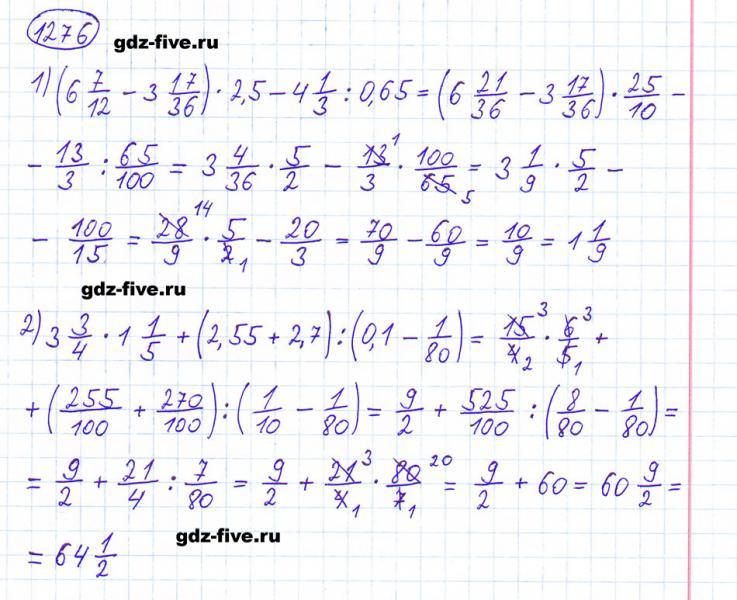 1276
gdz-five.ru
1) (6 7/12 − 3 17/36) · 2,5 − 4 1/3 : 0,65 = (6 21/36 − 3 17/36) · 25/10 −
− 13/3 : 65/100 = 3 4/36 · 5/2 − 13/3 1 · 100/65 5 = 3 1/9 · 5/2 −
− 100/15 = 28/9 14 · 5/2 1 − 20/3 = 70/9 − 60/9 = 10/9 = 1 1/9
gdz-five.ru
2) 3 3/4 · 1 1/5 + (2,55 + 2,7) : (0,1 − 1/80) = 15/4 3 2 · 6/5 3 1 +
+ (255/100 + 270/100) : (1/10 − 1/80) = 9/2 + 525/100 : (8/80 − 1/80) =
= 9/2 + 21/4 : 7/80 = 9/2 + 21/4 3 1 · 80/7 20 1 = 9/2 + 60 = 60 9/2 =
gdz-five.ru
= 64 1/2